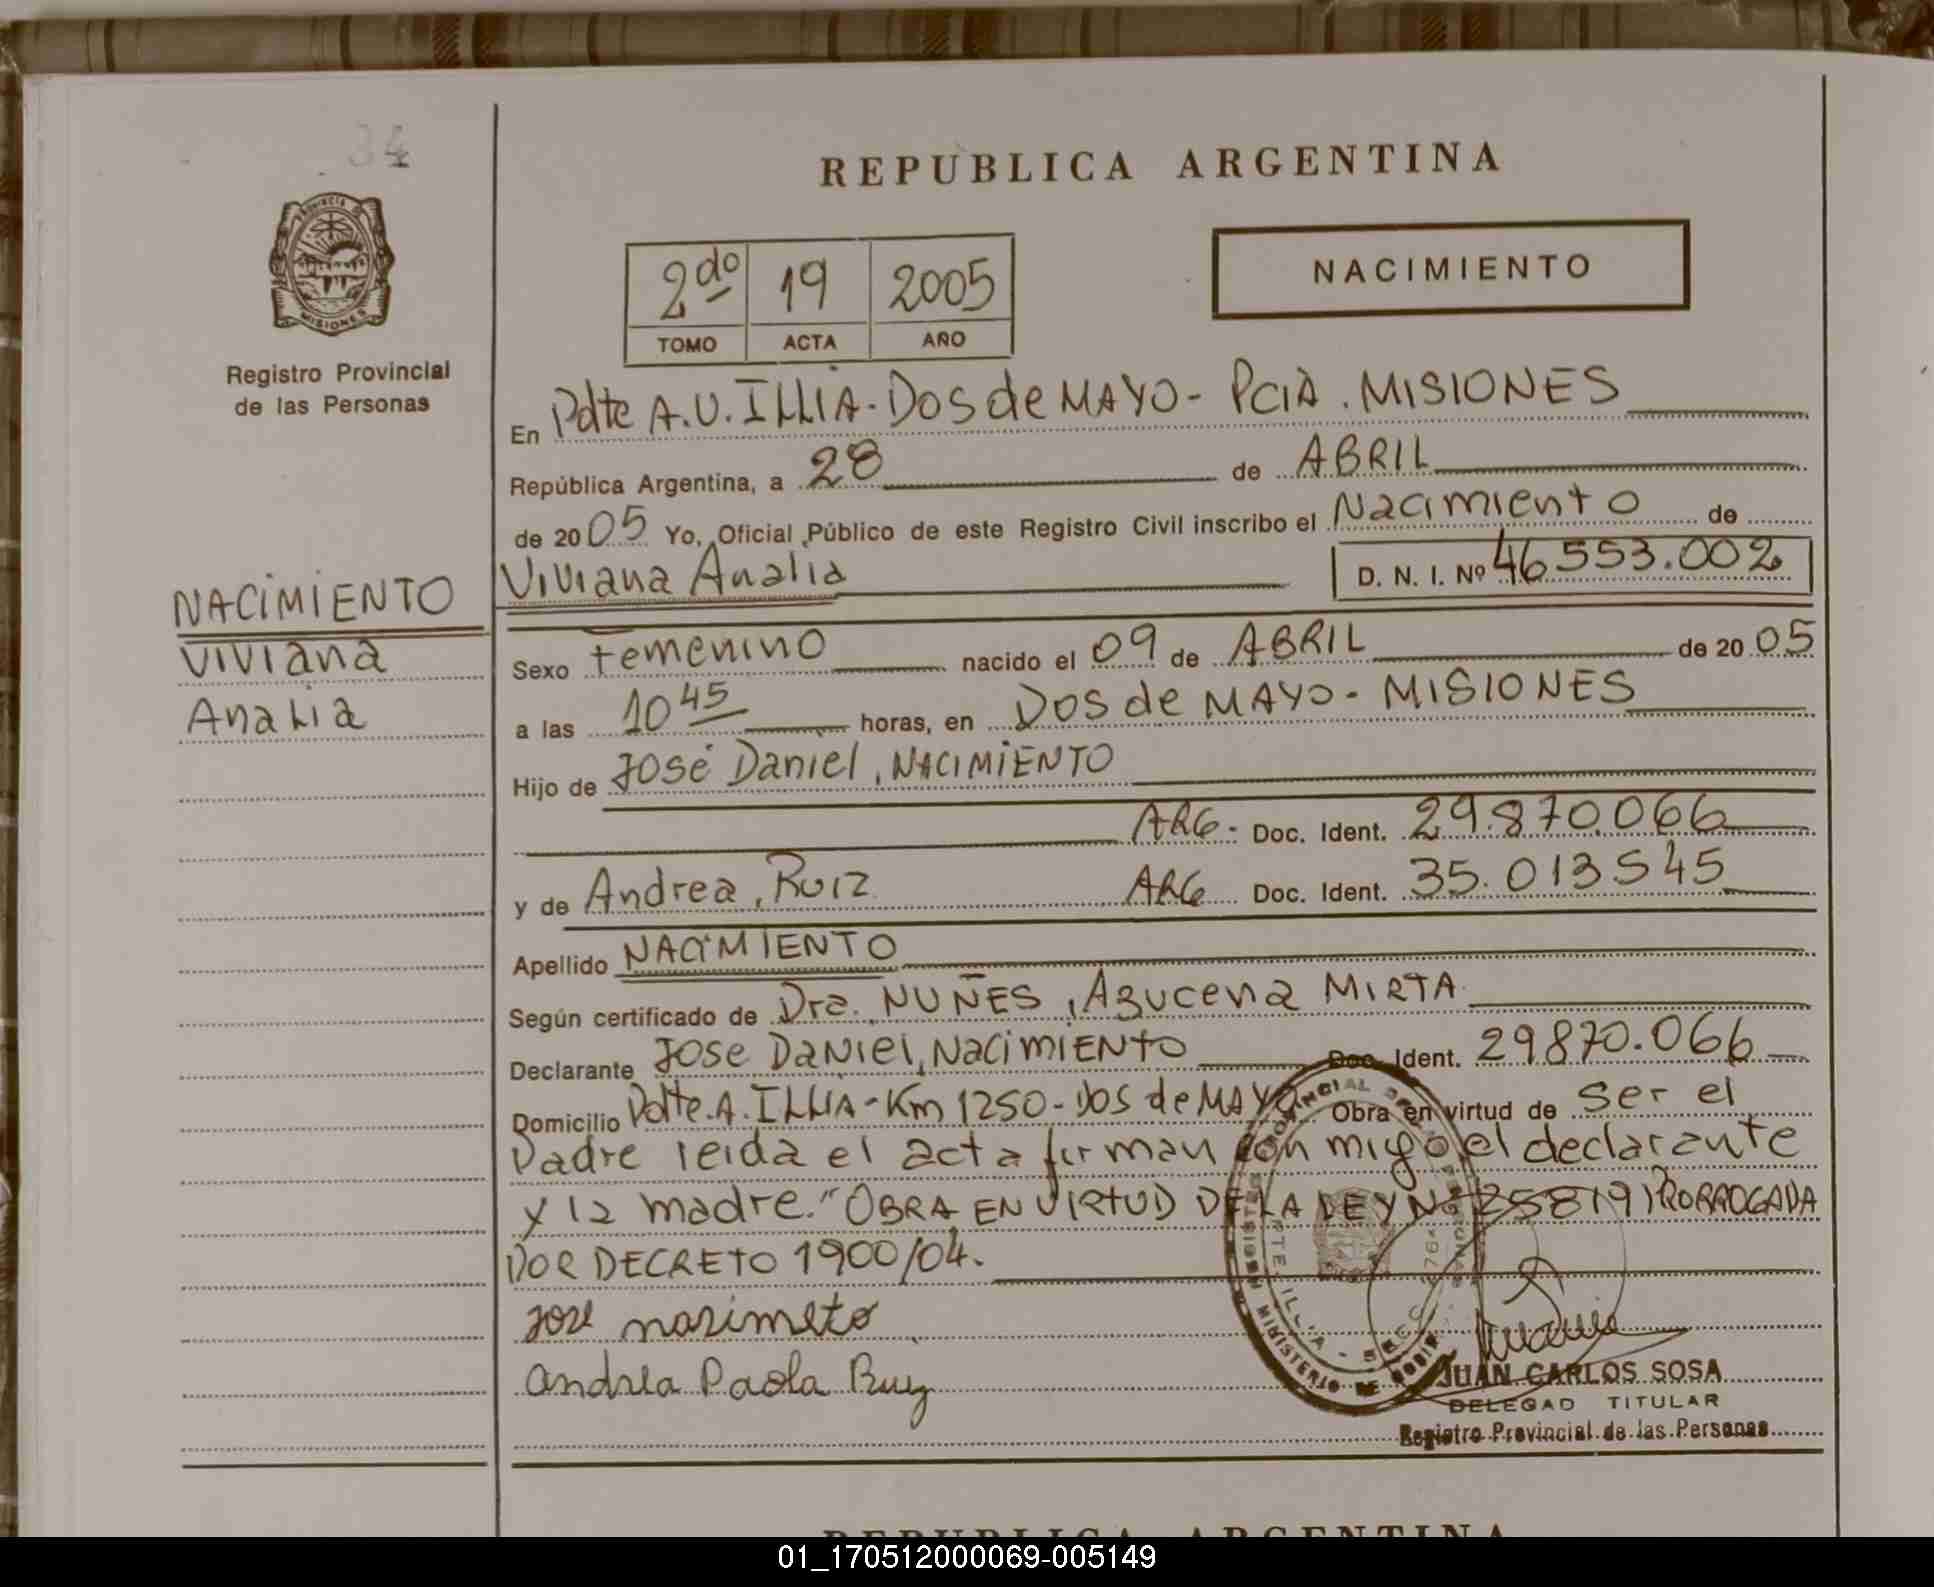 34
REPUBLICA ARGENTINA
PROVINCIA DE
MISIONES
Registro Provincial
de las Personas
2do 19 2005
TOMO ACTA AÑO
NACIMIENTO
En Pdte A.U. ILLIA - DOS de MAYO - PCIA. MISIONES
República Argentina, a 28 de ABRIL
de 2005 Yo, Oficial Público de este Registro Civil inscribo el Nacimiento de
Viviana Analia D. N. I. Nº 46553.002
NACIMIENTO
Viviana
Analia
Sexo Femenino nacido el 09 de ABRIL de 2005
a las 10 45 horas, en DOS de MAYO - MISIONES
Hijo de José Daniel, NACIMIENTO
ARG. Doc. Ident. 29.870.066
y de Andrea, Ruiz ARG Doc. Ident. 35.013545
Apellido NACIMIENTO
Según certificado de Dra. NUÑES, Azucena MIRTA
Declarante JOSE DANIEL, NACIMIENTO Doc. Ident. 29870.066
Domicilio Pdte. A. ILLIA - Km 1250 - DOS de MAYO Obra en virtud de ser el
Padre leida el acta firman con migo el declarante
y la madre. "OBRA EN VIRTUD DE LA LEY Nº 25819) PRORROGADA
POR DECRETO 1900/04.
Jose nasimeto
Andrea Paola Ruiz
JUAN CARLOS SOSA
DELEGADO TITULAR
Registro Provincial de las Personas
REPUBLICA ARGENTINA
01_170512000069-005149